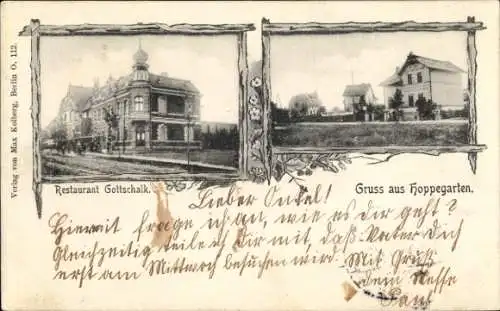 Verlag von Max Kolberg, Berlin O, 112.
Restaurant Gottschalk.
Gruss aus Hoppegarten.
Lieber Onkel!
Hiermit frage ich an, wie es dir geht?
Gleichzeitig teile ich Dir mit, daß Vater dich
erst am Mittwoch besuchen wird. Mit Gruß
dein Neffe
Paul